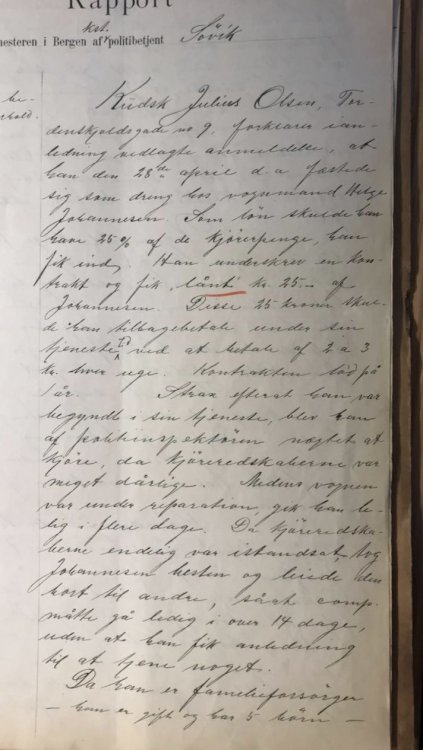 Rapport
kst.
mesteren i Bergen af politibetjent Sövik
be-
hold.
Kudsk Julius Olsen, Tor-
denskjoldsgade no 9, forklarer i an-
ledning vedlagte anmeldelse, at
han den 28de april d.a. fæstede
sig som dreng hos vognmand Helge
Johannesen. Som lön skulde han
have 25% af de kjörerpenge, han
fik ind. Han underskrev en kon-
trakt og fik "lånt" kr. 25.- af
Johannesen. Disse 25 kroner skul-
de han tilbagebetale under sin
tjenestetid ved at betale af 2 a 3
kr. hver uge. Kontrakten löd på
1 år. Strax efterat han var
begyndt i sin tjeneste, blev han
af politiinspektören nægtet at
kjöre, da kjöreredskaberne var
meget dårlige. Medens vognen
var under reparation, gik han le-
dig i flere dage. Da kjöreredska-
berne endelig var istandsat, tog
Johannesen hesten og leiede den
bort til andre, såat comp.
måtte gå ledig i over 14 dage,
uden at han fik anledning
til at tjene noget.
Da han er familieforsörger
- han er gift og har 5 börn -